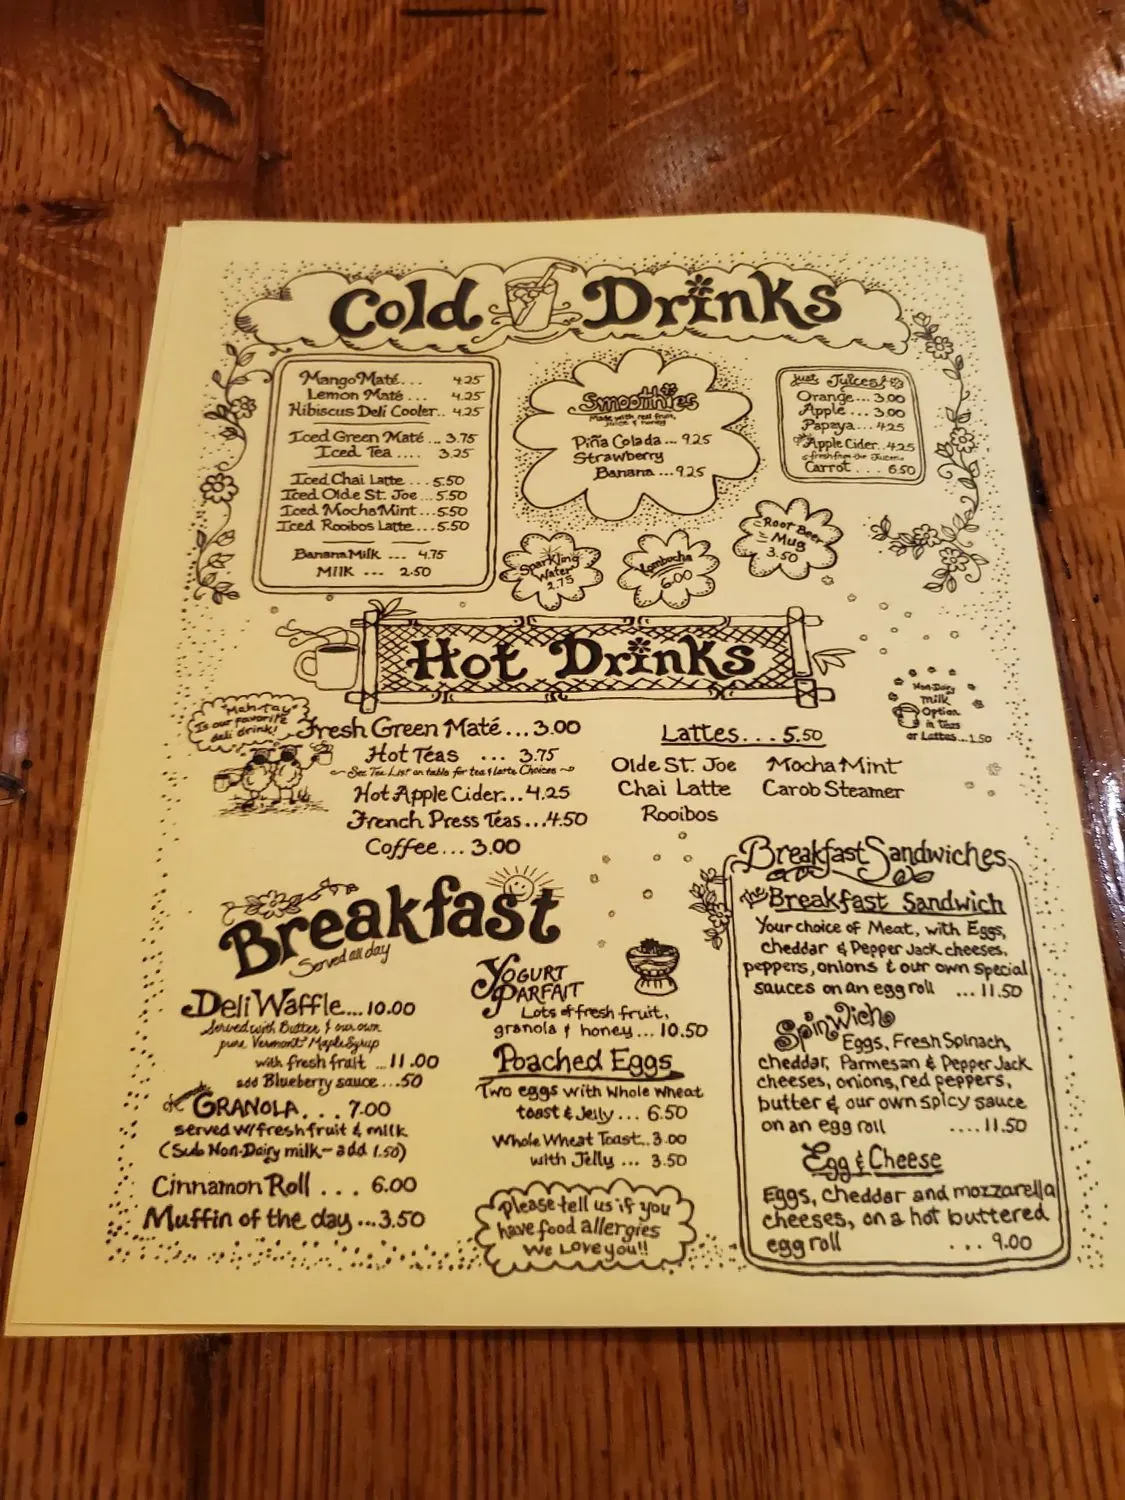 Cold Drinks
Mango Maté... 4.25
Lemon Maté... 4.25
Hibiscus Deli Cooler.. 4.25
Iced Green Maté... 3.75
Iced Tea .... 3.25
Iced Chai Latte ...5.50
Iced Olde St. Joe ...5.50
Iced Mocha Mint...5.50
Iced Rooibos Latte...5.50
Banana Milk ... 4.75
Milk ... 2.50
Smoothies
Made with real fruit,
juice & honey
Piña Colada ... 9.25
Strawberry
Banana ... 9.25
Just Juices!
Orange... 3.00
Apple ... 3.00
Papaya... 4.25
Apple Cider.. 4.25
fresh from the Juicer
Carrot . . . . 6.50
Sparkling
Water
2.75
Kombucha
6.00
Root Beer
Mug
3.50
Hot Drinks
"Mah-Tay"
Is our favorite
deli drink!
Fresh Green Maté...3.00
Hot Teas ... 3.75
~ See Tea List on table for tea & latte Choices ~
Hot Apple Cider...4.25
French Press Teas...4.50
Coffee... 3.00
Lattes... 5.50
Olde St. Joe Mocha Mint
Chai Latte Carob Steamer
Rooibos
Non-Dairy
Milk
Option
in Teas
or Lattes...1.50
Breakfast
Served all day
Deli Waffle....10.00
Served with Butter & our own
pure Vermont Maple Syrup
with fresh fruit ...11.00
add Blueberry sauce....50
Granola... 7.00
served w/fresh fruit & milk
(Sub Non-Dairy milk - add 1.50)
Cinnamon Roll ... 6.00
Muffin of the day...3.50
Yogurt
Parfait
Lots of fresh fruit,
granola & honey... 10.50
Poached Eggs
Two eggs with whole wheat
toast & Jelly ... 6.50
Whole Wheat Toast...3.00
with Jelly ... 3.50
please tell us if you
have food allergies
We Love you!!
Breakfast Sandwiches
The Breakfast Sandwich
Your choice of Meat, with Eggs,
cheddar & Pepper Jack cheeses,
peppers, onions & our own special
sauces on an egg roll ... 11.50
Spinwich
Eggs, Fresh Spinach,
cheddar, Parmesan & Pepper Jack
cheeses, onions, red peppers,
butter & our own spicy sauce
on an egg roll ....11.50
Egg & Cheese
Eggs, cheddar and mozzarella
cheeses, on a hot buttered
egg roll ... 9.00